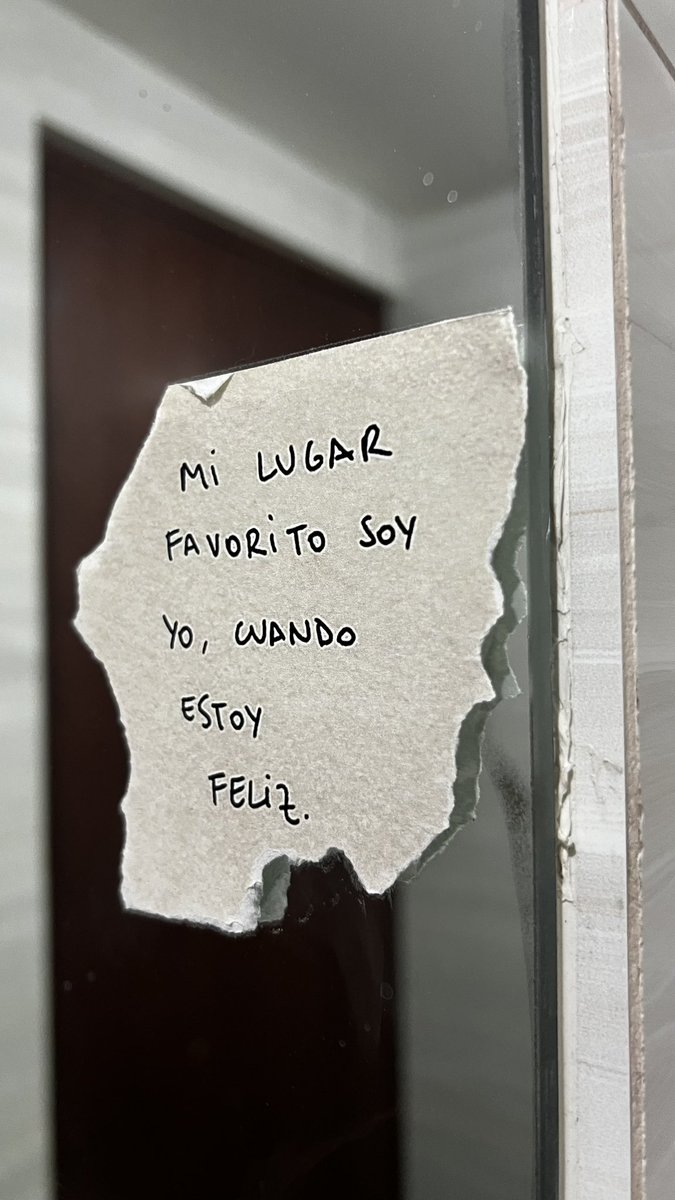 Mi LUGAR
FAVORiTO SOY
YO, CUANDO
ESTOY
FELiZ.